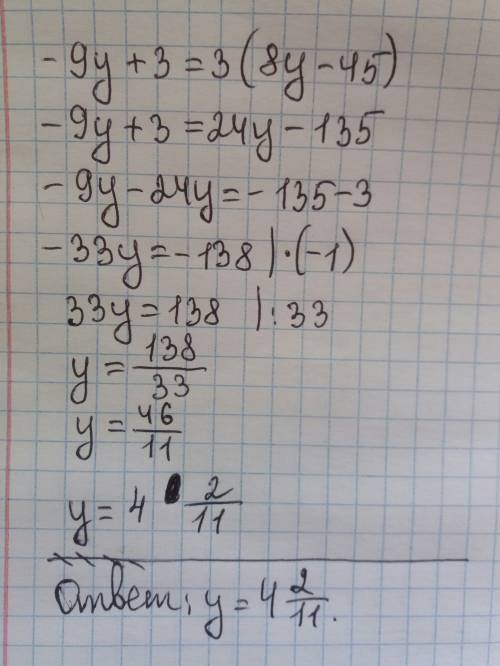 -9y+3=3(8y-45)
-9y+3=24y-135
-9y-24y=-135-3
-33y=-138 |·(-1)
33y=138 |:33
y=138/33
y=46/11
y=4 2/11
Ответ: y=4 2/11.